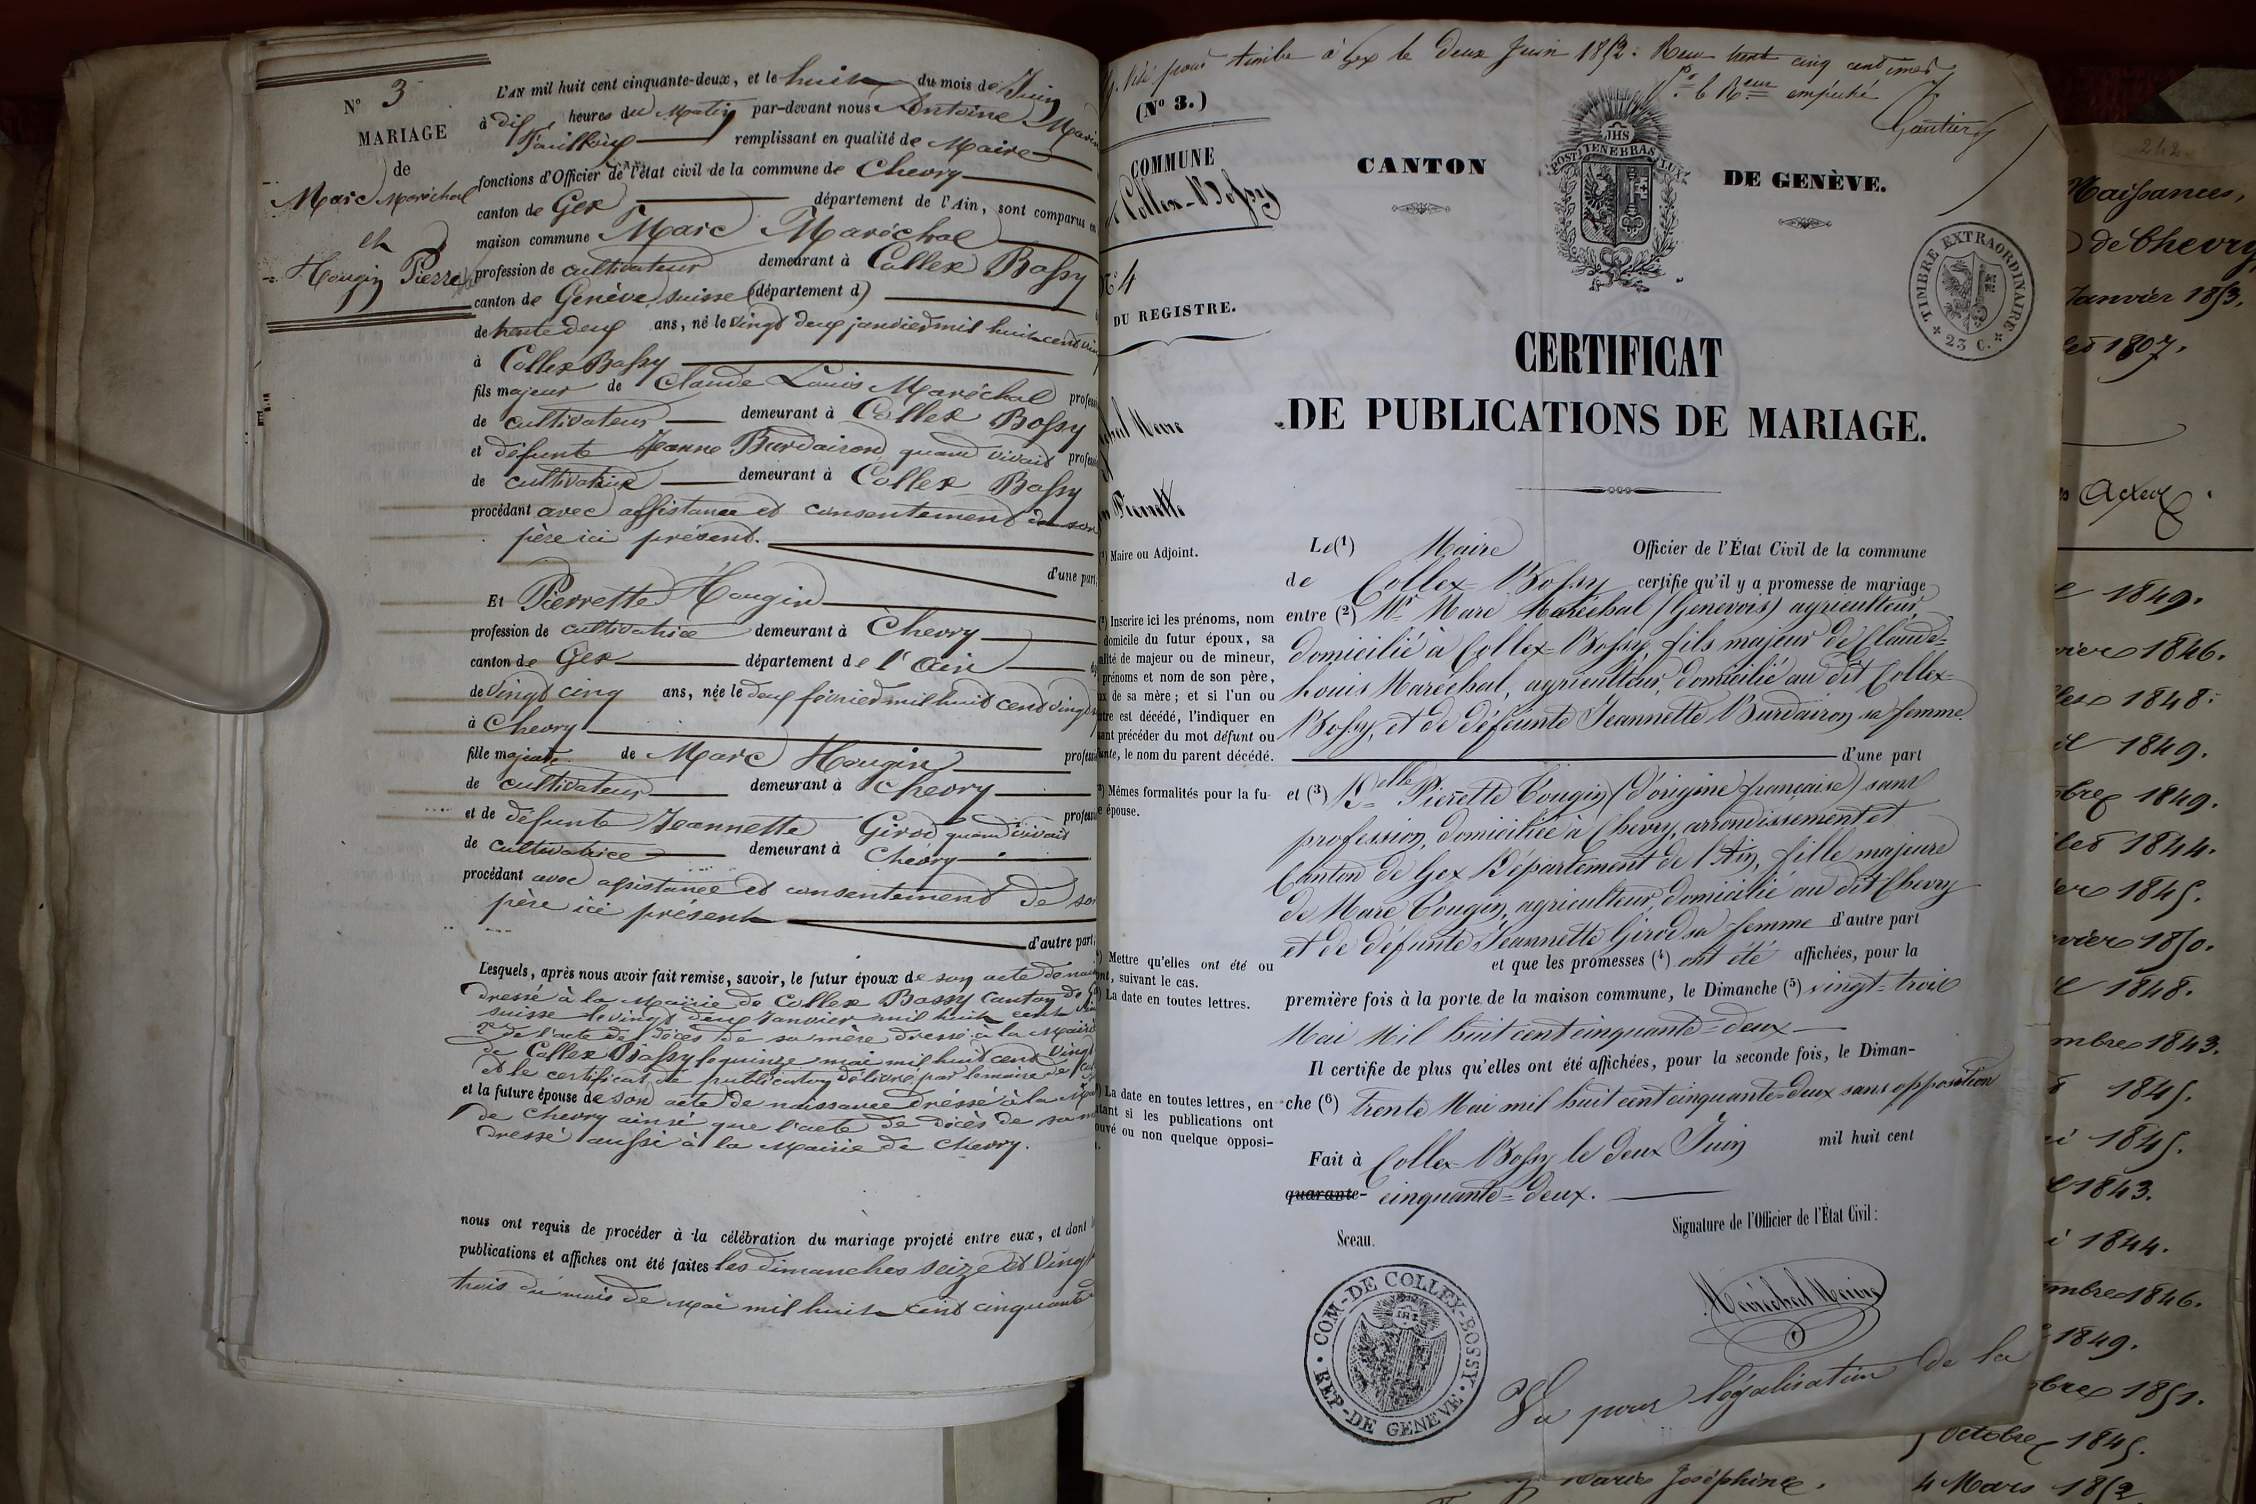 N° 3
MARIAGE
de
Marc Maréchal
et
Hougin Pierrette
L'AN mil huit cent cinquante-deux, et le huit du mois de Juin
à dix heures du Matin par-devant nous Antoine Marin
remplissant en qualité de Maire
fonctions d'Officier de l'état civil de la commune de Chevry
canton de Gex département de l'Ain, sont comparus en
maison commune Marc Maréchal
profession de cultivateur demeurant à Collex Bossy
canton de Genève suisse (département d)
de trente deux ans, né le vingt deux janvier mil huit cent
à Collex Bossy
fils majeur de Claude Louis Maréchal
de cultivateur demeurant à Collex Bossy
et défunte Jeanne Burdairon quand vivait
de cultivatrice demeurant à Collex Bossy
procédant avec assistance et consentement de son
père ici présent.
d'une part,
Et Pierrette Hougin
profession de cultivatrice demeurant à Chevry
canton de Gex département de l'Ain
de vingt cinq ans, née le deux février mil huit cent vingt
à Chevry
fille majeure de Marc Hougin
de cultivateur demeurant à Chevry
et de défunte Jeannette Girod quand vivait
de cultivatrice demeurant à Chevry
procédant avec assistance et consentement de son
père ici présent
d'autre part,
Lesquels, après nous avoir fait remise, savoir, le futur époux de son acte de
dressé à la Mairie de Collex Bossy Canton de
suisse le vingt deux Janvier mil huit cent
de l'acte de décès de sa mère dressé à la Mairie
de Collex Bossy le quinze mai mil huit cent vingt
et le certificat de publication délivré par le maire de
et la future épouse de son acte de naissance dressé à la
de Chevry ainsi que l'acte de décès de sa
dressé aussi à la Mairie de Chevry.
nous ont requis de procéder à la célébration du mariage projeté entre eux, et dont
publications et affiches ont été faites les dimanches seize et vingt
trois du mois de Mai mil huit cent cinquante
pour timbre à Gex le deux Juin 1852. Reçu trente cinq centimes
empêché
Gautier
(N° 3.)
COMMUNE
Collex-Bossy
N° 4
DU REGISTRE.
CANTON DE GENÈVE.
JHS
POST TENEBRAS LUX
TIMBRE EXTRAORDINAIRE
23 C.
CERTIFICAT
DE PUBLICATIONS DE MARIAGE.
Pierrette
Maire ou Adjoint.
Inscrire ici les prénoms, nom
domicile du futur époux, sa
qualité de majeur ou de mineur,
prénoms et nom de son père,
de sa mère ; et si l'un ou
est décédé, l'indiquer en
précéder du mot défunt ou
le nom du parent décédé.
Mêmes formalités pour la fu-
épouse.
Mettre qu'elles ont été ou
suivant le cas.
La date en toutes lettres.
La date en toutes lettres, en
si les publications ont
ou non quelque opposi-
Le (1) Maire Officier de l'État Civil de la commune
de Collex-Bossy certifie qu'il y a promesse de mariage
entre (2) Mr Marc Maréchal (Genevois) agriculteur,
domicilié à Collex-Bossy, fils majeur de Claude-
Louis Maréchal, agriculteur, domicilié au dit Collex-
Bossy, et de défunte Jeannette Burdairon sa femme
d'une part
et (3) Delle Pierrette Gougin (d'origine française) sans
profession, domiciliée à Chevry, arrondissement et
Canton de Gex Département de l'Ain, fille majeure
de Marc Gougin, agriculteur, domicilié au dit Chevry
et de défunte Jeannette Girod sa femme d'autre part
et que les promesses (4) ont été affichées, pour la
première fois à la porte de la maison commune, le Dimanche (5) vingt-trois
Mai Mil huit cent cinquante-deux
Il certifie de plus qu'elles ont été affichées, pour la seconde fois, le Diman-
che (6) trente Mai mil huit cent cinquante-deux sans opposition
Fait à Collex-Bossy le deux Juin mil huit cent
quarante- cinquante-deux.
Signature de l'Officier de l'État Civil :
Sceau.
Maréchal Maire
COM-DE COLLEX-BOSSY
REP-DE GENEVE
Vu pour légalisation de la
242
Naissances,
de Chevry
Janvier 1853,
1807.
Actes
1849.
1846.
1848.
1849.
1849.
1844.
1845.
1850.
1848.
1843.
1845.
1845.
1843.
1844.
1846.
1849.
1851.
Octobre 1845.
Marie Joséphine. 4 Mars 1852